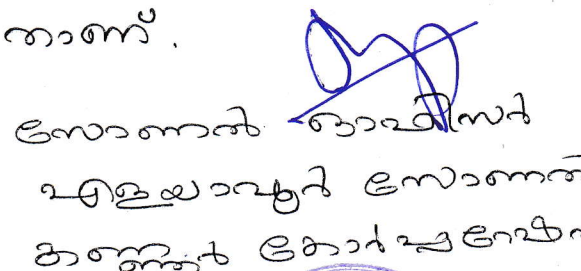 താണ്.
സോണൽ ഓഫീസർ
എളയാവൂർ സോണൽ
കണ്ണൂർ കോർപ്പറേഷൻ